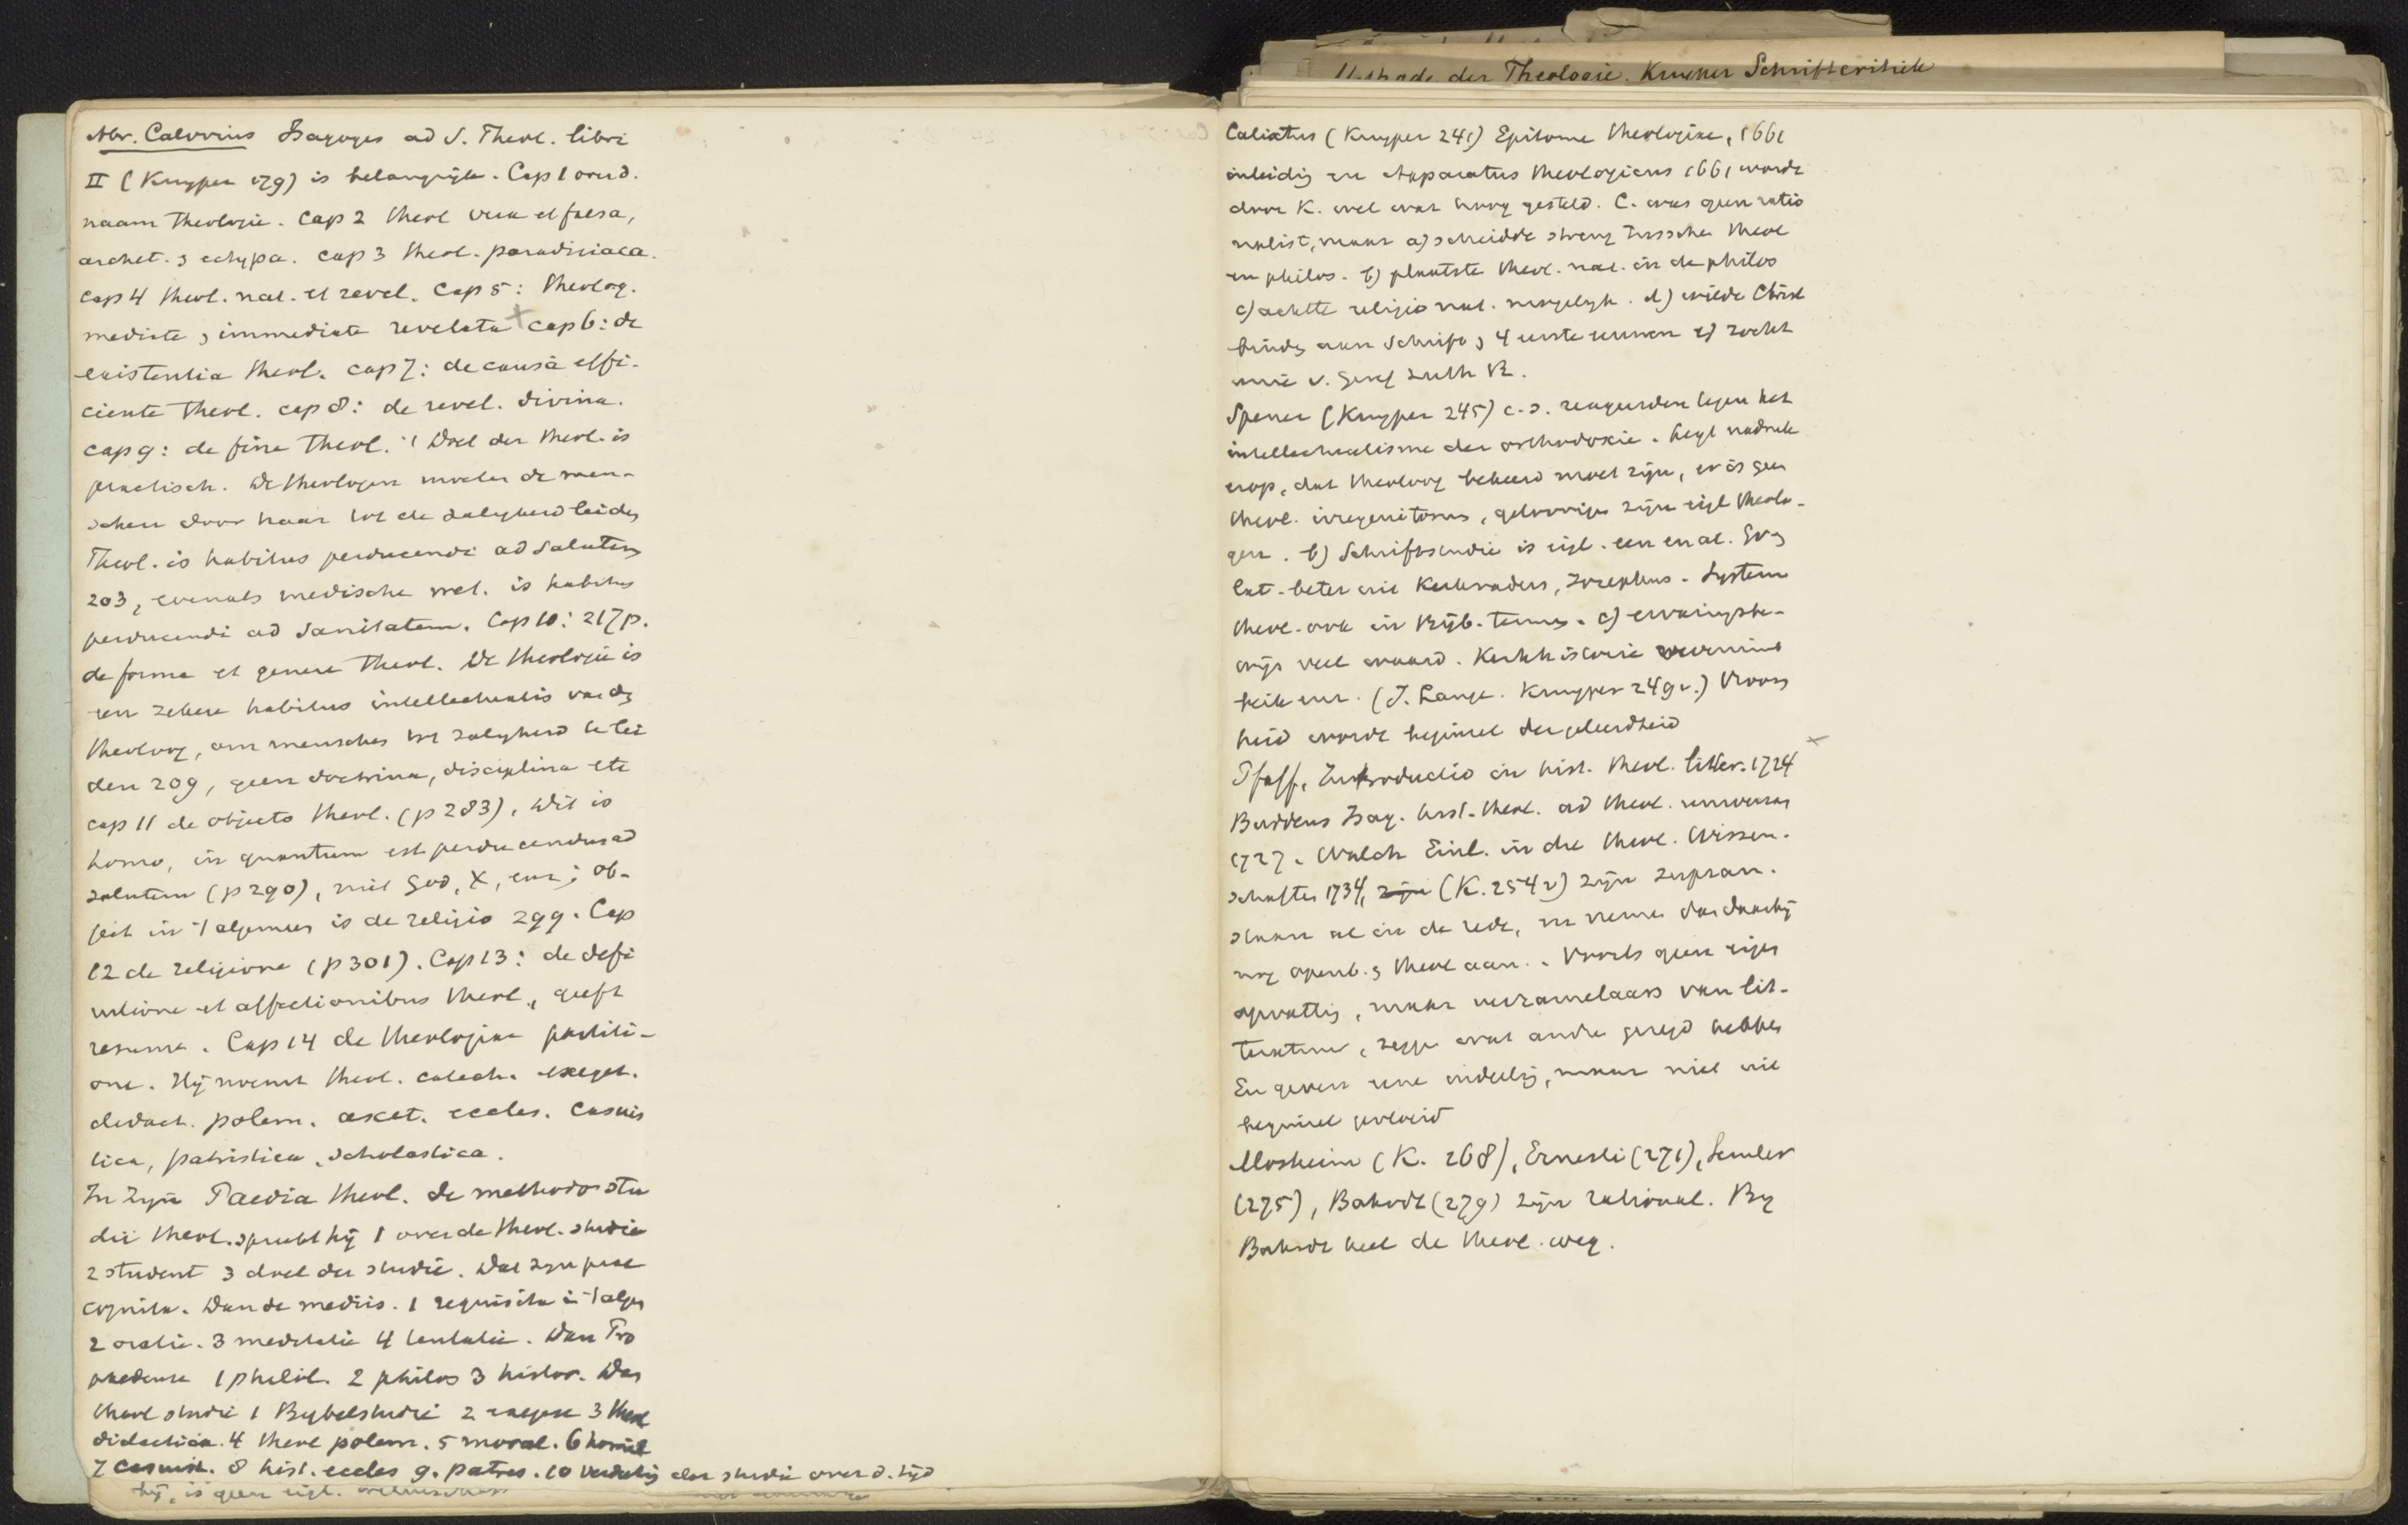 Abr. Calovius Isagoges ad S. Theol. libri
II (Kuyper 179) is belangrijk. Cap 1 over d.
naam theologie. Cap 2 theol vera et falsa,
archet. & ectypa. cap 3 theol. paradisiaca.
cap 4 theol. nat. et revel. Cap 5: theolog.
mediate & immediate revelata + cap 6: de
existentia theol. cap 7: de causâ effi-
ciente theol. cap 8: de revel. divina.
cap 9: de fine theol. 't Doel der theol. is
practisch. De theologen moeten de men-
schen door haar tot de zaligheid leiden
Theol. is habitus perducendi ad salutem
203, evenals medische wet. is habitus
perducendi ad sanitatem. Cap 10: 217 p.
de forma et genere theol. De theologie is
een zekere habitus intellectualis van den
theoloog, om menschen tot zaligheid te lei
den 209, geen doctrina, disciplina etc
cap 11 de objecto theol. (p 283), dit is
homo, in quantum est perducendus ad
salutem (p 290), niet God, X, enz; ob-
ject in 't algemeen is de religio 299. Cap
12 de religione (p 301). Cap 13: de defi
nitione et affectionibus theol., geeft
resumé. Cap 14 de theologiae partiti-
one. Hij noemt theol. catech. exeget.
didact. polem. ascet. eccles. casuis
tica, patristica, scholastica.
In zijn Paedia theol. de methodo stu
dii theol. spreekt hij 1 over de theol. studie
2 student 3 doel der studie. Dat zijn prae
cognita. Dan de mediis. 1 requisita in 't algem
2 oratie. 3 meditatie 4 tentatie. Dan Pro
paedeuse 1 philol. 2 philos 3 histor. Dan
theol studie 1 Bybelstudie 2 exegese 3 theol
didactica. 4 theol polem. 5 moral. 6 homil
7 casuist. 8 hist. eccles 9. patres. 10 verdeling der studie over d. tijd
hij, is geen eigl. wetenschap
Methode der Theologie. Kuyper Schriftcritiek
Calixtus (Kuyper 241) Epitome theologiae, 1661
inleiding en Apparatus theologicus 1661 wordt
door K. veel te hoog gesteld. C. was geen ratio
nalist, maar a) scheidde streng tusschen theol
en philos. b) plaatste theol. nat. in de philos
c) achtte religio nat. mogelijk. d) wilde Christ
binden aan Schrift & 4 eerste eeuwen e) zocht
unie v. Geref Luth R.
Spener (Kuyper 245) c.s. reageerden tegen het
intellectualisme der orthodoxie. legt nadruk
erop, dat theoloog bekeerd moet zijn, er is geen
theol. irregenitorum, geloovigen zijn eigl theolo-
gen. b) Schriftstudie is eigl. een en al. Gr. &
Lat. beter uit Kerkvaders, Josephus. System
theol. ook in Bijb. termen. c) ervaringsbe-
wijs veel waard. Kerkhistorie
(J. Lange. Kuyper 249 v.) Vroom
heid wordt beginsel der geleerdheid
Pfaff, Introductio in hist. theol. litter. 1724
Buddeus Isag. hist.-theol. ad theol. universam
1727. Walch Einl. in die theol. Wissen-
schaften 1734, zijn (K. 254 v) zijn supran.
staan al in de rede, en nemen dan daarbij
nog openb. & theol aan. Voorts geen eigen
opvatting, maar verzamelaars van lit-
teratuur, zeggen wat andre gezegd hebben
En geven eene indeeling, maar niet uit
beginsel geleid
Mosheim (K. 268), Ernesti (271), Semler
(275), Bahrdt (279) zijn rational. By
Bahrdt heel de theol. weg.